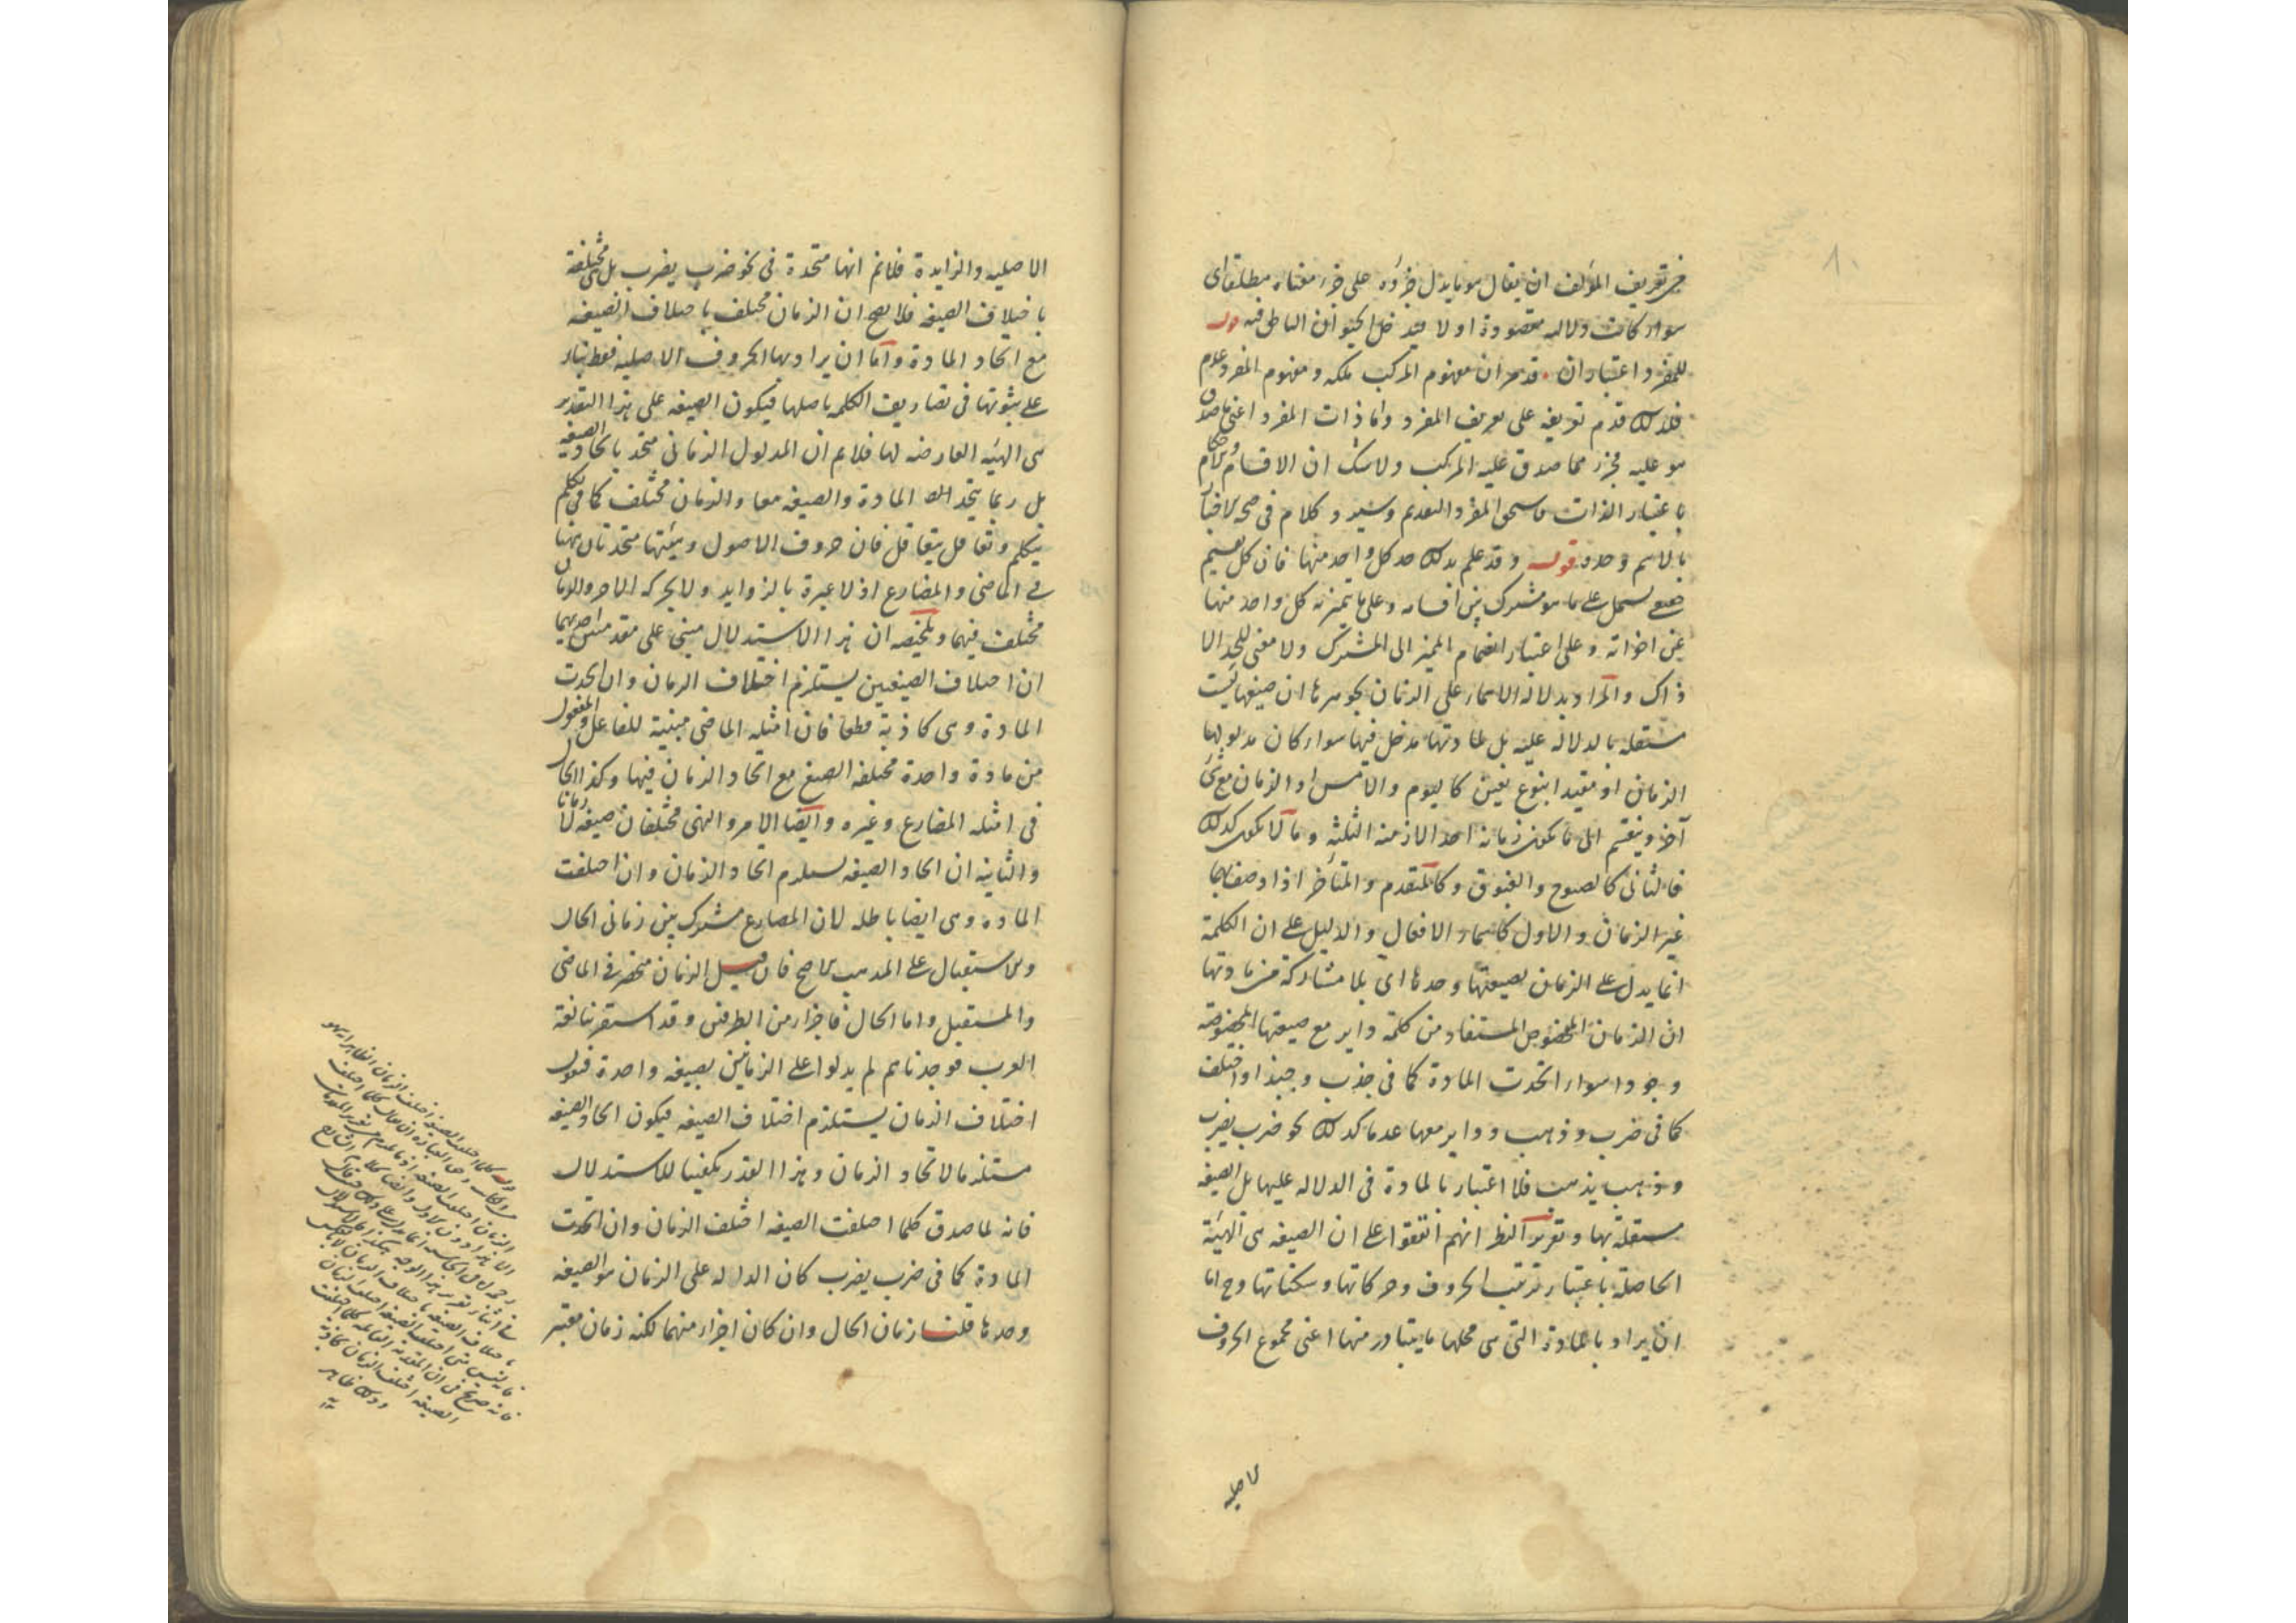 في تعريف المؤلف ان يقال هو ما يدل جزؤه على جزء معناه مطلقا اى
سواء كانت دلالة مقصودة او لا ليدخل الحيوان الناطق فيه قوله
للمفرد اعتباران قد مر ان مفهوم المركب ملكة ومفهوم المفرد عدم
فلذلك قدم تعريفه على تعريف المفرد واما ذات المفرد اعنى ما صدق
هو عليه فجزء مما صدق عليه المركب ولا شك ان الاقسام والاحكام
باعتبار الذات فاستحق المفرد التقديم وسيرد كلام فى صحة الاخبار
بالاسم وحده قوله وقد علم بذلك حد كل واحد منها فان كل تقسيم
يشتمل على ما هو مشترك بين اقسامه وعلى ما يتميز به كل واحد منها
عن اخواته وعلى اعتبار انضمام المميز الى المشترك ولا معنى للحد الا
ذاك والمراد بدلالة الاسماء على الزمان بجوهرها ان صيغها ليست
مستقلة بالدلالة عليه بل لمادتها مدخل فيها سواء كان مدلولها
الزمان او مقيدا بنوع تعين كاليوم والامس او الزمان مع شئ
آخر وينقسم الى ما يكون زمانه احد الازمنة الثلثة وما لا يكون كذلك
فالثانى كالصبوح والغبوق وكالمتقدم والمتأخر اذا وصف بهما
غير الزمان والاول كاسماء الافعال والدليل على ان الكلمة
انما يدل على الزمان بصيغتها وحدها اى بلا مشاركة من مادتها
ان الزمان المخصوص المستفاد من كلمة داير مع صيغتها المخصوصة
وجودا سواء اتحدت المادة كما فى جذب وجبذ او اختلف
كما فى ضرب وذهب وداير معها عدما كذلك نحو ضرب يضرب
وذهب يذهب فلا اعتبار بالمادة فى الدلالة عليها بل الصيغة
مستقلة بها وتقرير النظر انهم اتفقوا على ان الصيغة هى الهيئة
الحاصلة باعتبار ترتيب الحروف وحركاتها وسكناتها وح اما
ان يراد بالمادة التى هى محلها ما يتبادر منها اعنى مجموع الحروف
الاصلية
الاصلية والزايدة فلانم انها متحدة فى نحو ضرب يضرب بل هى مختلفة
باختلاف الصيغة فلا يصح ان الزمان مختلف باختلاف الصيغة
مع اتحاد المادة واما ان يراد بها الحروف الاصلية فقط بناء
على ثبوتها فى تصاريف الكلمة باصلها فيكون الصيغة على هذا التقدير
هى الهيئة العارضة لها فلانم ان المدلول الزمانى متحد باتحاد الصيغة
بل ربما يتحد المادة والصيغة معا والزمان مختلف كما فى تكلم
يتكلم وتغافل يتغافل فان حروف الاصول وهيئتها متحدتان ههنا
فى الماضى والمضارع اذ لا عبرة بالزوايد ولا بحركة الاخر والزمان
مختلف فيهما وتلخيصه ان هذا الاستدلال مبنى على مقدمتين احديهما
ان اختلاف الصيغتين يستلزم اختلاف الزمان وان اتحدت
المادة وهى كاذبة قطعا فان امثلة الماضى مبنية للفاعل والمفعول
من مادة واحدة مختلفة الصيغ مع اتحاد الزمان فيها وكذا الحال
فى امثلة المضارع وغيره وايضا الامر والنهى مختلفان صيغة لا زمانا
والثانية ان اتحاد الصيغة يستلزم اتحاد الزمان وان اختلفت
المادة وهى ايضا باطلة لان المضارع مشترك بين زمانى الحال
والاستقبال على المذهب الاصح فان قيل الزمان منحصر فى الماضى
والمستقبل واما الحال فاجزاء من الطرفين وقد استقرينا لغة
العرب فوجدناهم لم يدلوا على الزمانين بصيغة واحدة فنقول
اختلاف الزمان يستلزم اختلاف الصيغة فيكون اتحاد الصيغة
مستلزما لاتحاد الزمان وهذا القدر يكفينا للاستدلال
فانه لما صدق كلما اختلفت الصيغة اختلف الزمان وان اتحدت
المادة كما فى ضرب يضرب كان الدال على الزمان هو الصيغة
وحدها قلنا زمان الحال وان كان اجزاء منهما لكنه زمان معتبر